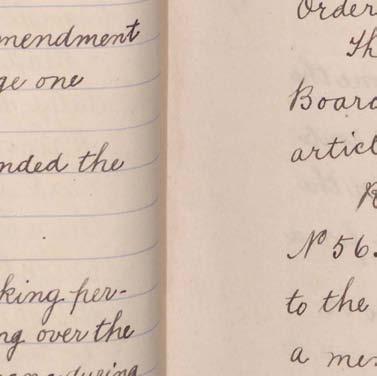 mendment
ge one
nded the
king per-
ng over the
during
Order
Th
Board
articl
R
No 56.
to the
a mem